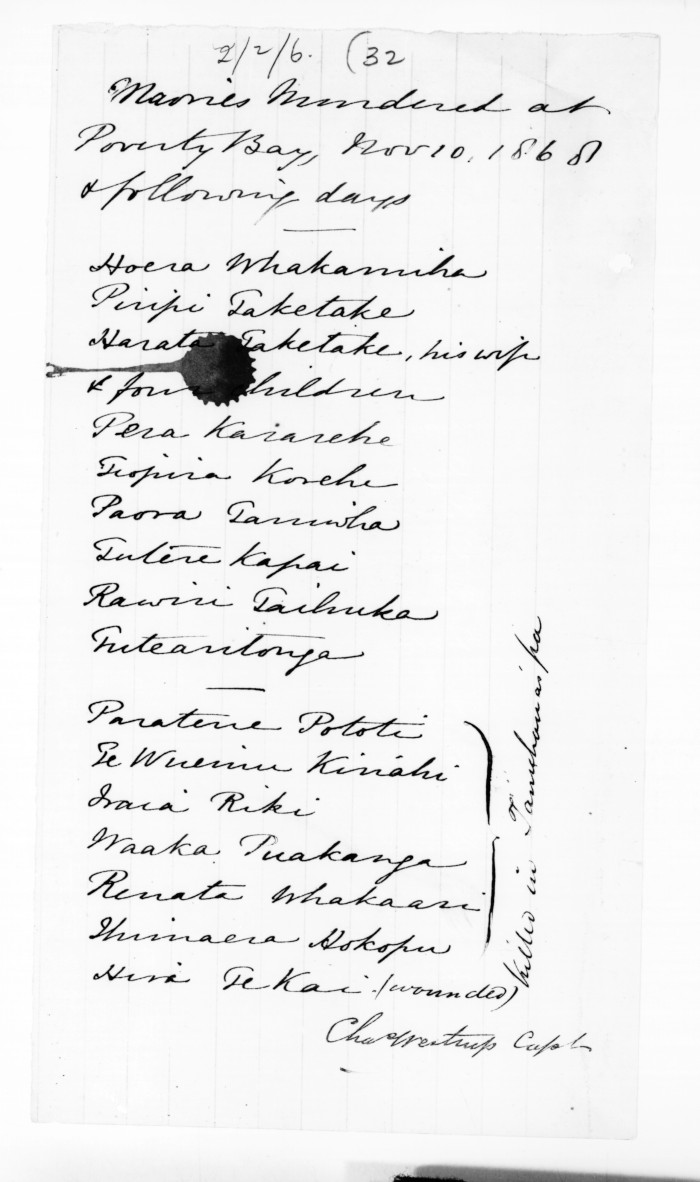 2/2/6. (32
Maories Murdered at
Poverty Bay, Nov 10, 1868
& following days
Hoera Whakamiha
Piripi Taketake
Harata Taketake, his wife
& four children
Pera Kaiarehe
Teopira Korehe
Paora Tamwha
Tutere Kapai
Rawiri Taihuka
Tutearitonga
Paratene Pototi
Te Wuemu Kiriahi
Iraia Riki
Waaka Puakanga
Renata Whakaari
Ihimaera Hokopu
Hira Te Kai (wounded)
Killed in Tamehanas' pa
Chas Westrup Capt